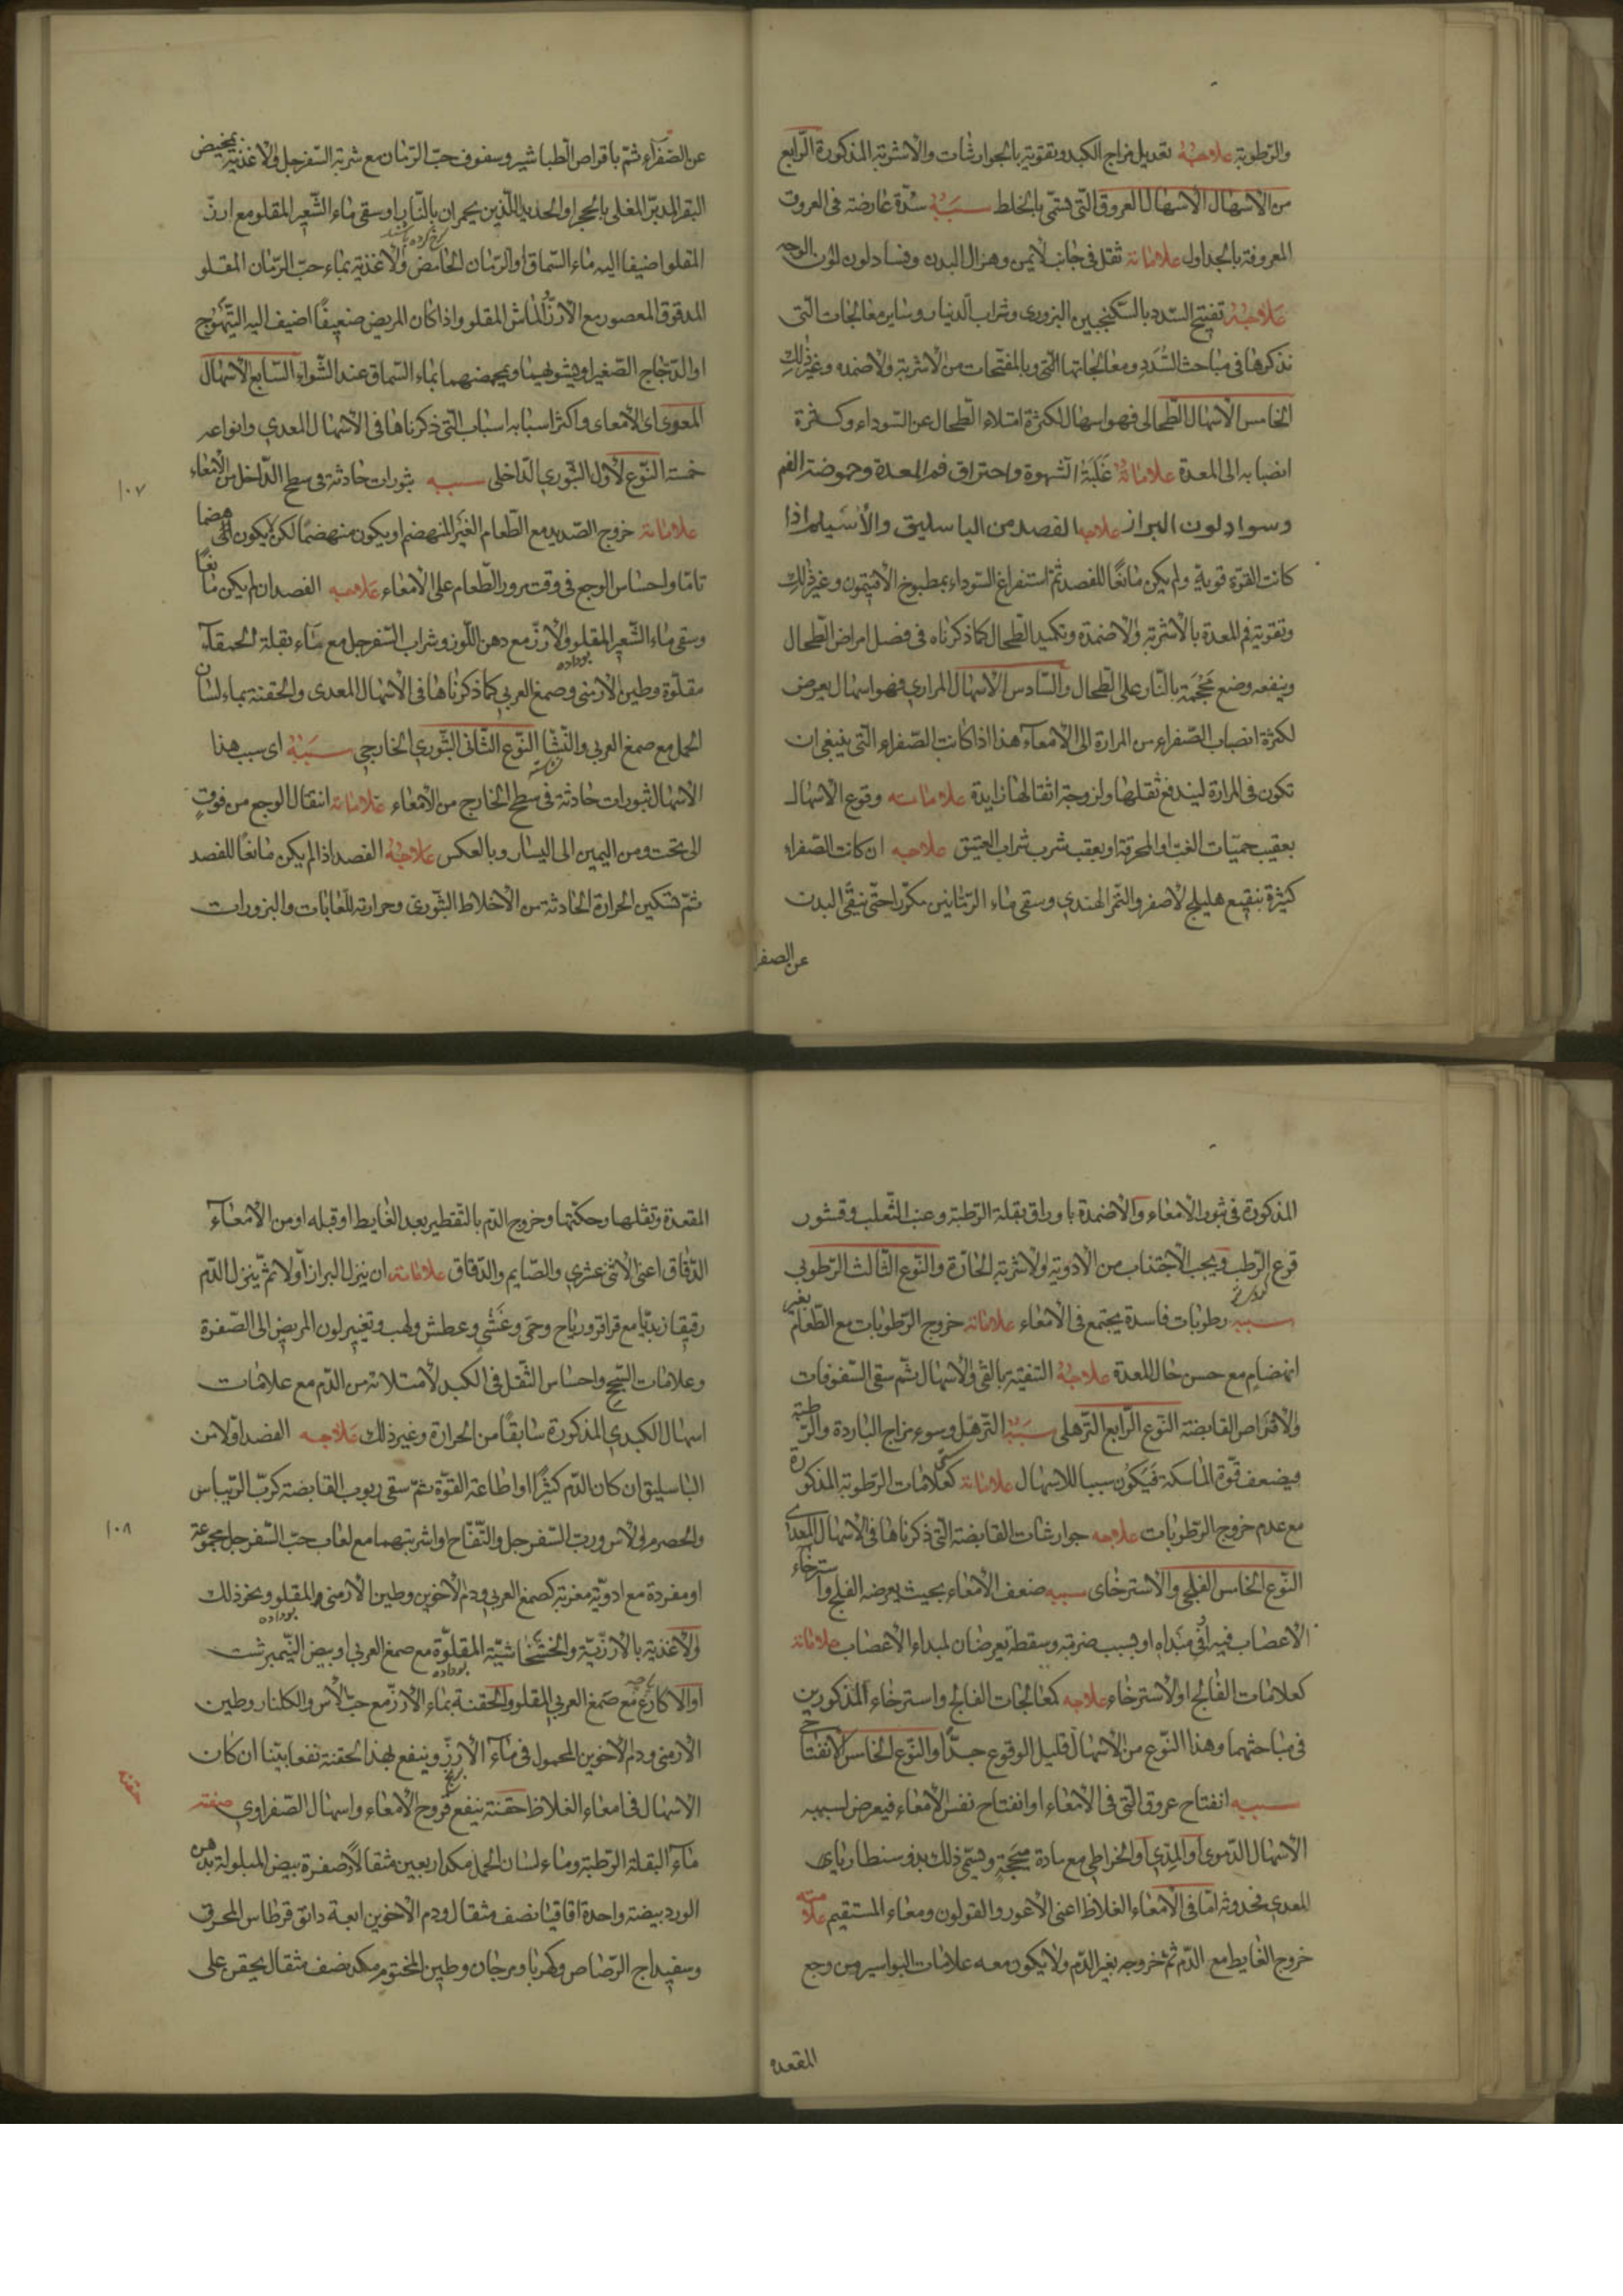 والرّطوبة علاجهُ تعديل مزاج الكبد وتقويته بالجوارشات والاشربة المذكورة الرّابع
من الاسهال الاسهال العروق التى يسمّى بالخلط سببهُ سدّة عارضة فى العروق
المعروفة بالجداول علاماته ثقل فى جانب الأيمن وهزال البدن وفساد لون الوجه
علاجهُ تفتيح السّدد بالسّكنجبين البزورى وشراب الدّينار وساير معالجات الّتى
نذكرها فى مباحث السُّدَد ومعالجاتها الّتى وبالمفتّحات من الاشربة والاضمده وغير ذلك
الخامس الاسهال الطّحالى فهو اسهال لكثرة امتلاء الطّحال عن السّوداء وكثرة
انصبابه الى المعدة علاماتهُ غَلَبَة الشهوة واحتراق فم المعدة وحموضة الفم
وسواد لون البراز علاجه الفصد من الباسليق والأُسَيلم اذا
كانت القوّة قوية ولم يكن مانعًا للفصد ثمّ استفراغ السّوداء بمطبوخ الافتيمون وغير ذلك
وتقوية فم المعدة بالأشربة والاضمدة وتكميد الطّحال كما ذكرناه فى فصل امراض الطّحال
وينفعه وضع مَحْجَمَة بالنّار على الطّحال والسّادس الاسهال المرارى فهو اسهال يعرض
لكثرة انصباب الصّفراء من المرارة الى الأمعاء هذا اذا كانت الصّفراء الّتى ينبغى ان
تكون فى المرارة ليندفع ثقلها ولزوجة اثقالها زايدة علاماته وقوع الاسهال
بعقيب حميّات الغب او المحرقة او بعقب شرب شراب العتيق علاجه ان كانت الصّفراء
كثيرة بنقيع هليلج الأصفر والتّمر الهندي وسقى ماء الرّمّانين مكرّرا حتّى ينقّى البدن
عن الصفرا
عن الصّفراء ثمّ باقراص الطّباشير وسفوف حبّ الرّمّان مع شربة السّفرجل والاغذية بمخيض
البقر المدبّر المغلى بالحجر او الحديد اللّذين يحمران بالنّار او سقى ماء الشّعير المقلو مع ارزّ
سرخ كرده باشند
المقلو اضيفا اليه ماء السّماق او الرّمّان الحامض والاغذية بماء حبّ الرّمّان المقلو
المدقوق المعصور مع الأرزّ والماش المقلو واذا كان المريض ضعيفًا اضيف اليه التّيهوج
او الدّجاج الصّغير او يشويهما ويحمضهما بماء السّماق عند الشّواء السّابع الاسهال
المعوى اى الأمعاى واكثر اسبابه اسباب الّتى ذكرناها فى الاسهال المعدى وانواعه
خمسة النّوع الأول البثورى الدّاخلى سببه بثورات حادثة فى سطح الدّاخل من الأمعاء
١٠٧
علاماته خروج الصّديد مع الطّعام الغير المنهضم او يكون منهضمًا لكن لا يكون هضما
تامّا واحساس الوجع فى وقت مرور الطّعام على الأمعاء علاجه الفصد ان لم يكن مانعًا
وسقى ماء الشّعير المقلو والأرزّ مع دهن اللّوز وشراب السّفرجل مع ماء بقلة الحمقاء
بوداده
مقلوّة وطين الأرمنى وصمغ العربى كما ذكرناها فى الأسهال المعدى والحقنة بماء لسان
الحمل مع صمغ العربى والنّشا النّوع الثّانى البثورى الخارجى سببهُ اى سبب هذا
الاسهال بثورات حادثة فى سطح الخارج من الأمعاء علاماته انتقال الوجع من فوقٍ
الى تحت ومن اليمين الى اليسار وبالعكس علاجهُ الفصد اذا لم يكن مانعًا للفصد
ثمّ تسكين الحرارة الحادثة من الأخلاط البثورىّ وحرارة اللّعابات والبزورات
المذكورة فى بثور الأمعاء والأضمدة باوراق بقلة الرّطبة وعنب الثّعلب وقشور
قرع الرّطب ويجب الأجتناب من الأدوية والأشربة الحارّة والنّوع الثّالث الرّطوبى
سببه رطوبات فاسدة يجتمع فى الأمعاء علاماته خروج الرّطوبات مع الطّعام بغير
انهضام مع حسن حال المعدة علاجهُ التنقية بالقى والأسهال ثمّ سقى السّفوفات
والأقراص القابضة النّوع الرّابع التّرهلى سببهُ التّرهّل وسوء مزاج الباردة والرّطبة
فيضعف قوّة الماسكة فيَكُون سببا للاسهال علاماته كعلامات الرّطوبة المذكورة
مع عدم خروج الرّطوبات علاجه جوارشات القابضة الّتى ذكرناها فى الاسهال المعدى
النّوع الخامس الفلجى والاسترخاى سببه ضعف الأمعاء بحيث يعرضه الفلج واسترخاء
الاعصاب فيه او فى مبداه او بسبب ضربة وسقطة يعرضان لمبداء الأعصاب علاماته
كعلامات الفالج او الأسترخاء علاجه كمعالجات الفالج واسترخاء المذكورين
فى مباحثهما وهذا النّوع من الأسهال قليل الوقوع جدًّا والنّوع الخامس الانفتاحى
سببه انفتاح عروق الّتى فى الأمعاء او انفتاح نفس الأمعاء فيعرض لسببه
الأسهال الدّموى او المِدّى او الخراطى مع مادة مسحّجةٍ ويسمّى ذلك بدوسنطاريا
المعدى فحدوثه امّا فى الأمعاء الغلاظ اعنى الأعور والقولون ومعاء المستقيم علامته
خروج الغايط مع الدّم ثمّ خروجه بغير الدّم ولا يكون معه علامات البواسير من وجع
المقعده
المقعدة وثقلها وحكّتها وخروج الدّم بالتّقطير بعد الغايط او قبله او من الأمعاء
الدّقاق اعنى الأثنى عشرى والصّايم والدّقاق علاماته ان ينزل البراز اوّلا ثمّ ينزل الدّم
رقيقا زبديّا مع قراقر ورياح وحمى وغَشْى وعطش ولهب وتغيير لون المريض الى الصّفرة
وعلامات السّحج واحساس الثّقل فى الكبد لأمتلائه من الدّم مع علامات
اسهال الكبدى المذكورة سابقًا من الحرارة وغير ذلك علاجه الفصد اوّلا من
الباسليق ان كان الدّم كثيرًا او اطاعة القوّة ثمّ سقى ربوب القابضة كربّ الرّيباس
والحصرم والأس وربّ السّفرجل والتّفّاح او اشربتهما مع لعاب حبّ السّفرجل مجموعة
١٠٨
او مفردة مع ادويّة مغرّية كصمغ العربى ودم الأخوين وطين الأرمنى والمقلو ونحو ذلك
بوداده
والأغذية بالأرزّيّة والخشخاشيّة المقلوّة مع صمغ العربى او بيض النّيمبرشت
بوداده
او الأكارع مع صمغ العربى المقلو والحقنة بماء الأرزّ مع حبّ الأس والكلنار وطين
الأرمنى ودم الأخوين المحمول فى ماء الأرزّ وينفع لهذا الحقنة نفعا بيّنا ان كان
الاسهال فى امعاء الغلاظ حقنة ينفع قروح الأمعاء واسهال الصّفراوى صفته
حقنه
ماء البقلة الرّطبة وماء لسان الحمل مكد اربعين مثقالاً وصفرة بيض المبلولة بدهن
الورد بيضة واحدة اقاقيا نصف مثقال ودم الأخوين اربعة دانق قرطاس المحرق
وسفيداج الرّصاص وكهربا ومرجان وطين المختوم مكد نصف مثقال يحقن على